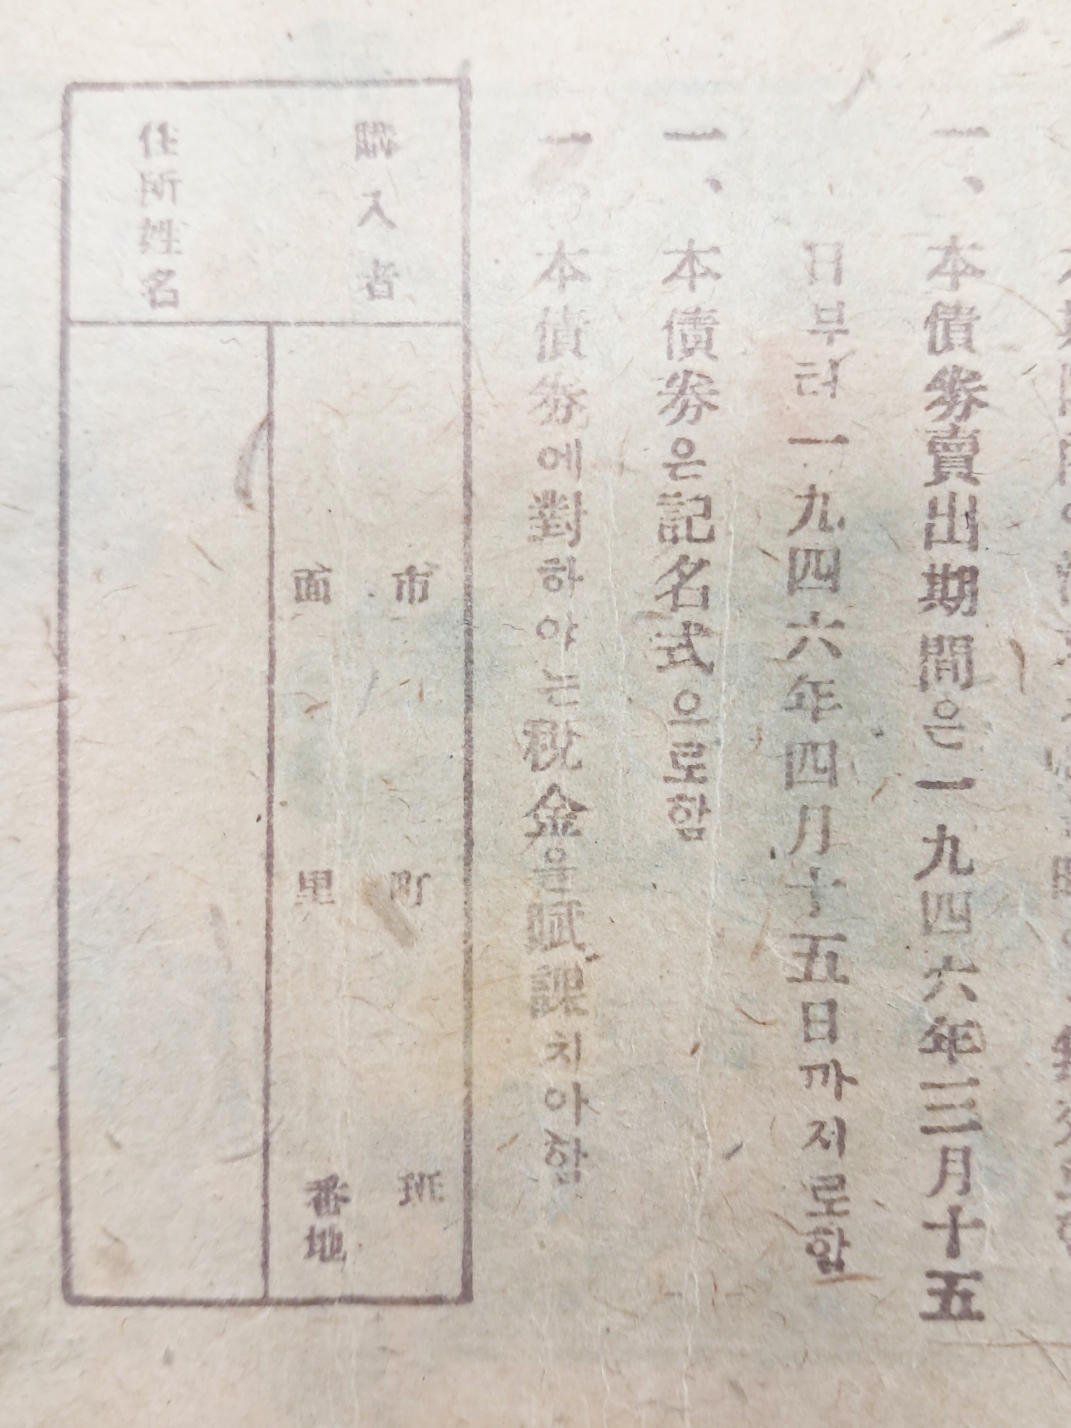 一、本債券賣出期間은一九四六年三月十五
日부터一九四六年四月十五日까지로함
一、本債券은記名式으로함
一、本債券에對하야는稅金을賦課치아함
購入者
住所姓名
市 町 班
面 里 番地